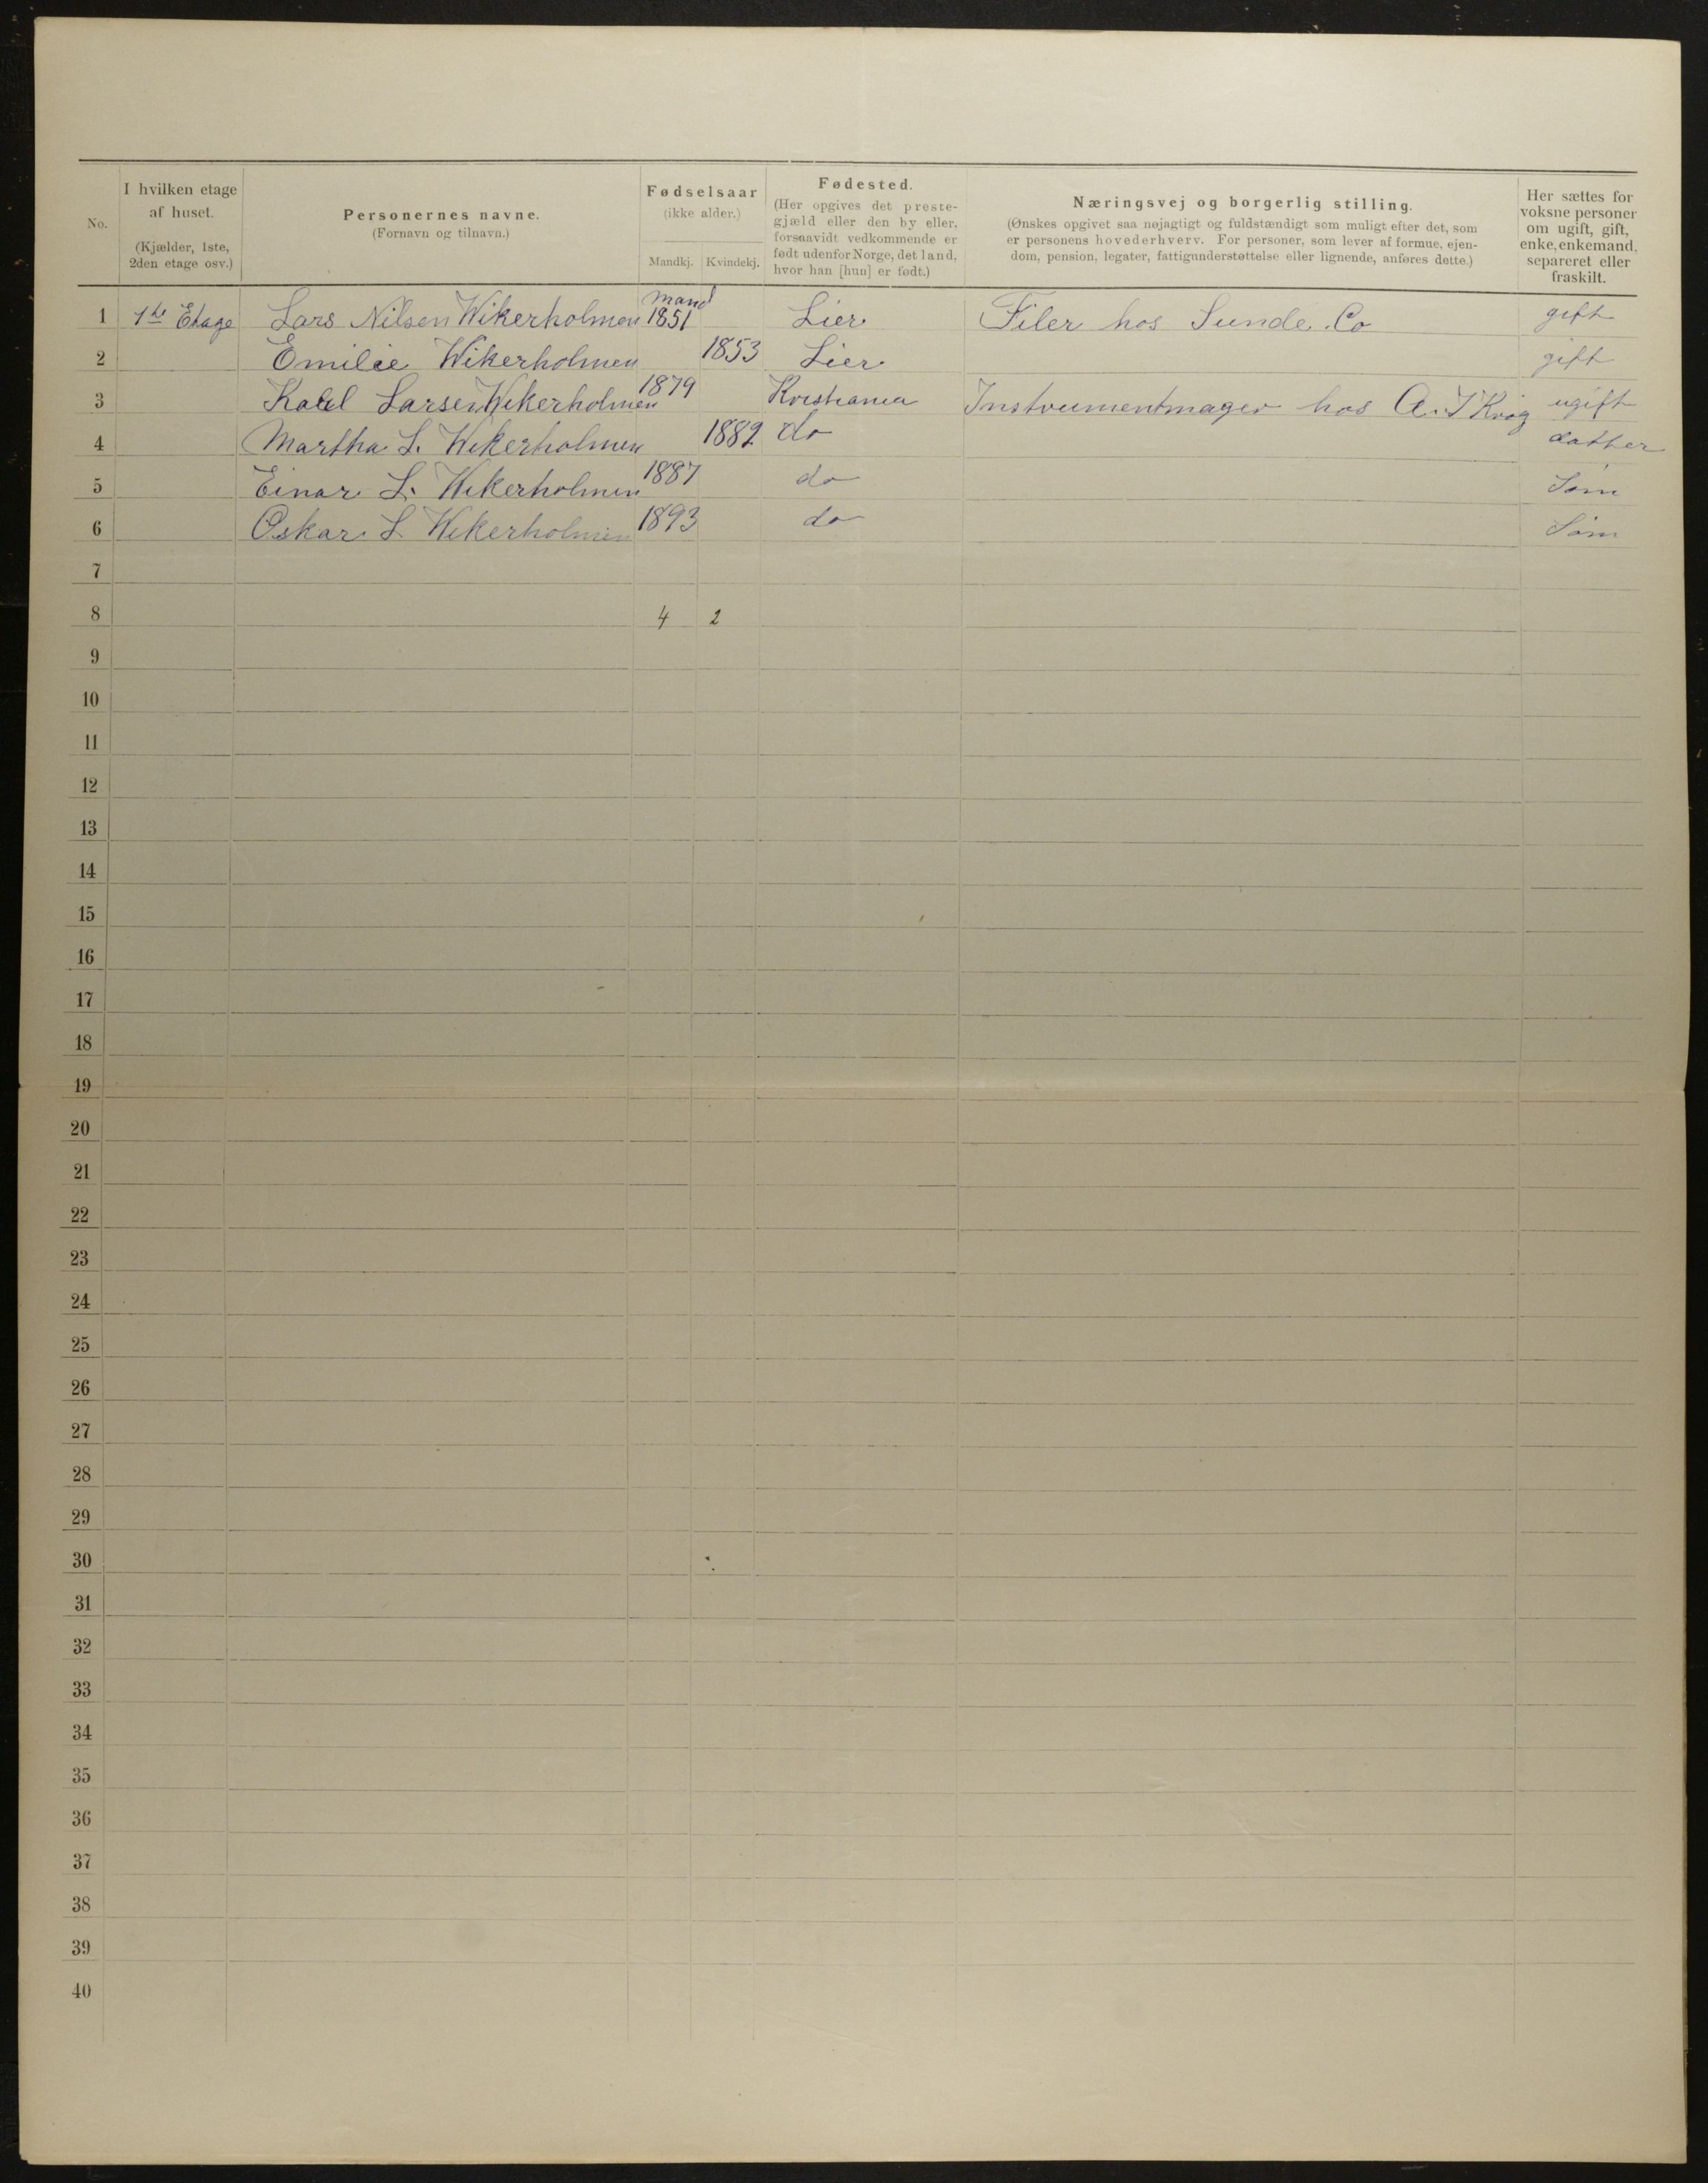 No.
I hvilken etage af huset. (Kjælder, 1ste, 2den etage osv.)
Personernes navne. (Fornavn og tilnavn.)
Fødselsaar (ikke alder.) Mandkj. Kvindekj.
Fødested. (Her opgives det prestegjæld eller den by eller, forsaavidt vedkommende er født udenfor Norge, det land, hvor han [hun] er født.)
Næringsvej og borgerlig stilling. (Ønskes opgivet saa nøjagtigt og fuldstændigt som muligt efter det, som er personens hovederhverv. For personer, som lever af formue, ejendom, pension, legater, fattigunderstøttelse eller lignende, anføres dette.)
Her sættes for voksne personer om ugift, gift, enke, enkemand, separeret eller fraskilt.
1 1ste Etage Lars Nilsen Wikerholmen Mand 1851 Lier Filer hos Sunde Co gift
2 Emilie Wikerholmen 1853 Lier gift
3 Karl Larsen Wikerholmen 1879 Kristiania Instrumentmager hos A. J Krog ugift
4 Martha L. Wikerholmen 1882 do datter
5 Einar L. Wikerholmen 1887 do Søn
6 Oskar L Wikerholmen 1893 do Søn
7
8 4 2
9
10
11
12
13
14
15
16
17
18
19
20
21
22
23
24
25
26
27
28
29
30
31
32
33
34
35
36
37
38
39
40